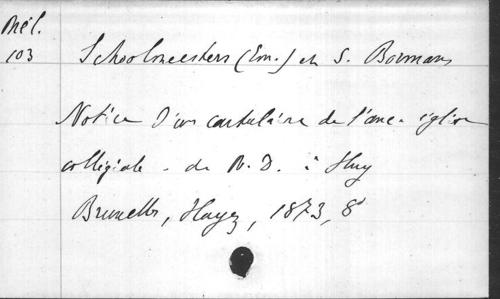 Mél.
103
Schoolmeesters (Em.) et S. Bormans
Notice d'un cartulaire de l'anc. église
collégiale de N. D. à Huy
Bruxelles, Hayez, 1873, 8°